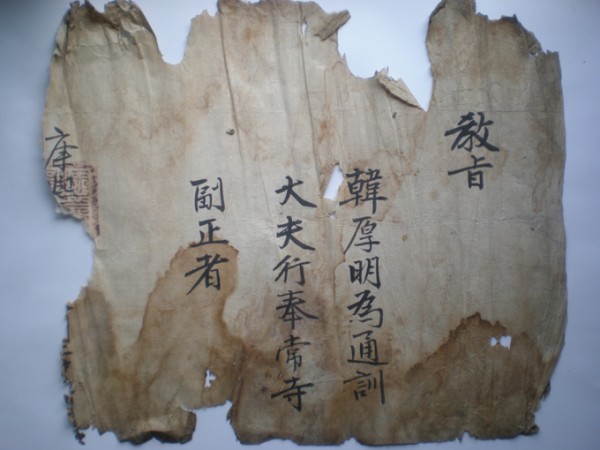 教旨
韓厚明為通訓
大夫行奉常寺
副正者
康熙